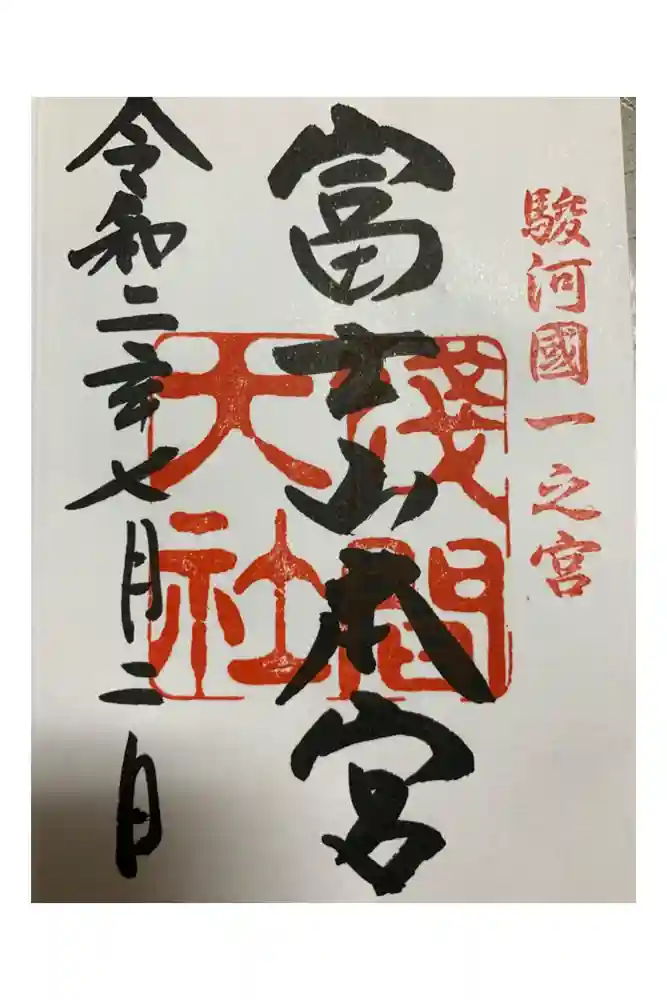 駿河國一之宮
富士山本宮
淺間
天社
令和二年七月二日